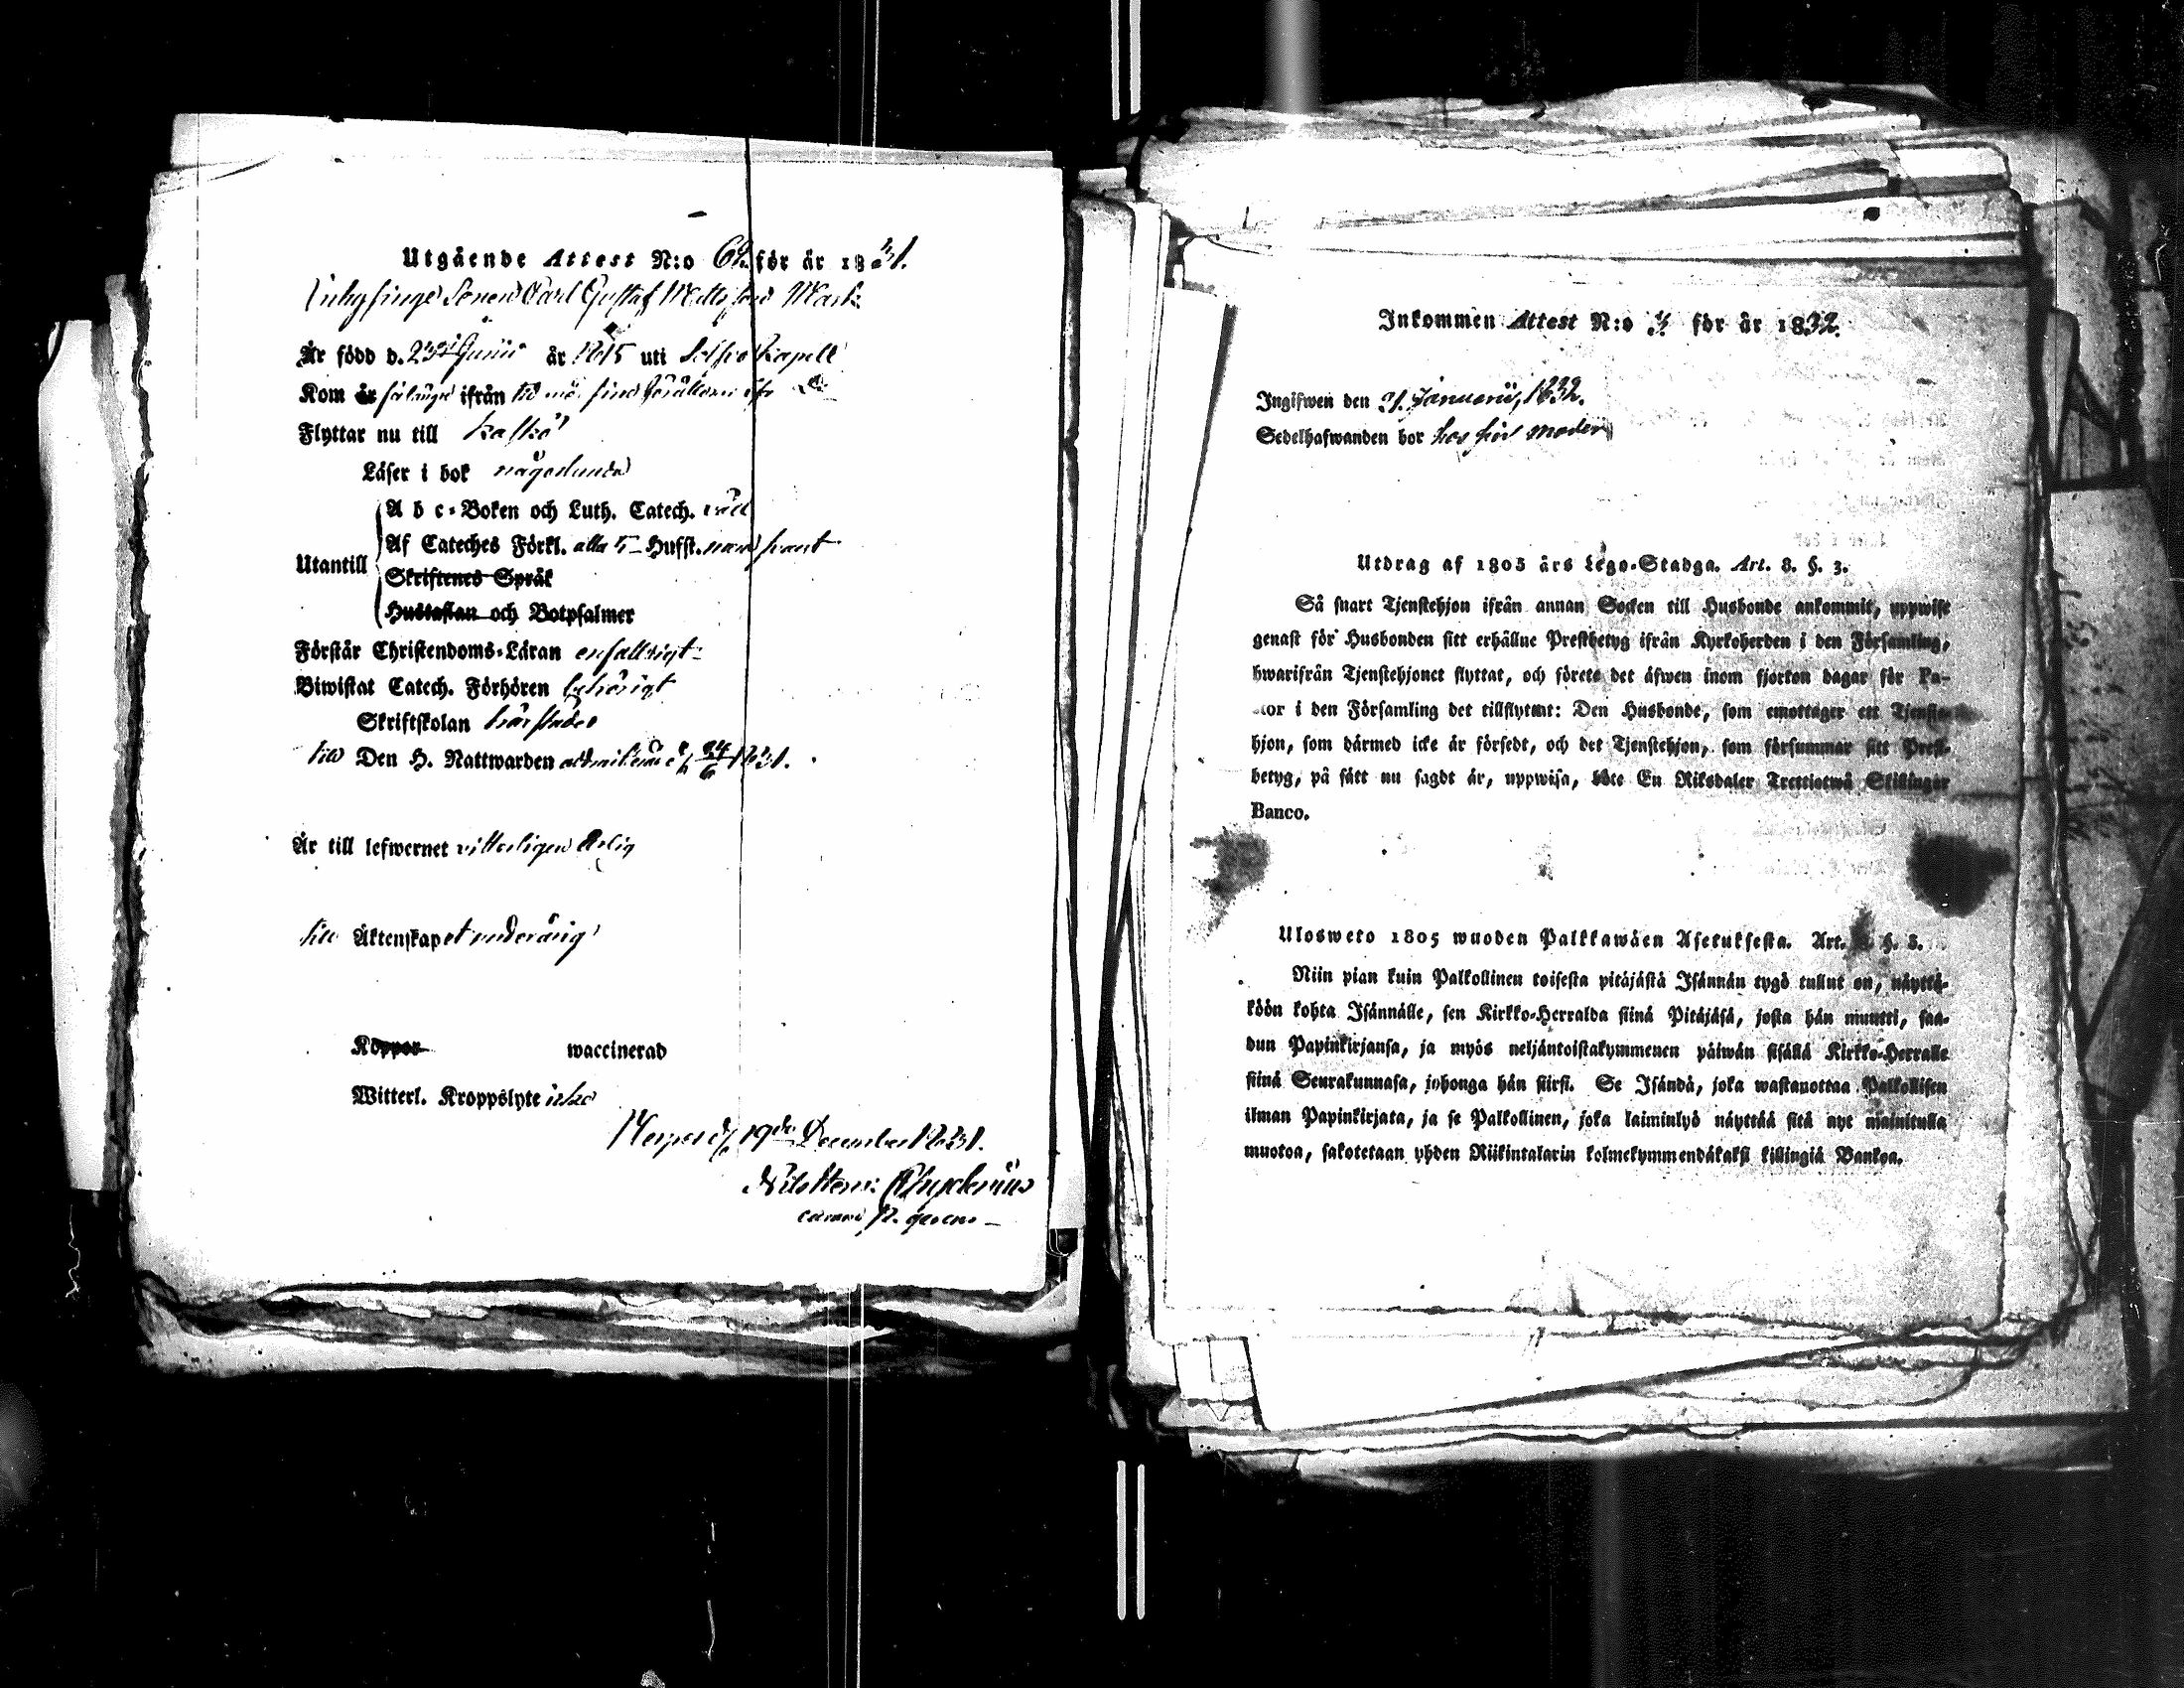 Utgående Attest N:o 62. för år 1831.
Inhysinge Sonen Carl Gustaf Mattsson Mark
Är född d. 23 Junii år 1815 uti Sideby kapell
Kom är ifrån sina föräldrar
Flyttar nu till Kaskö
Läser i bok någorlunda
A b c-Boken och Luth. Catech. wäl
Utantill Af Cateches Förkl. alla 5 Hufst.
Skriftenes Språk
Hustaflan och Botpsalmer
Förstår Christendoms-Läran enfalldigt
Biwistat Catech. Förhören behörigt
Skriftskolan härstädes
till Den H. Nattwarden admitterad d. 24/6 1831.
Är till lefwernet witterligen ärlig
till Äktenskapet underårig
Koppor waccinerad
Witterl. Kroppslyte icke
d. 19de December 1831.
Inkommen Attest N:o för år 1832.
Ingifwen den 21. Januarii, 1832.
Sedelhafwanden bor hos sin moder
Utdrag af 1805 års Lego-Stadga. Art. 8. §. 3.
Så snart Tjenstehjon ifrån annan Socken till Husbonde ankommit, uppwise
genast för Husbonden sitt erhållne Prestbetyg ifrån Kyrkoherden i den Församling,
hwarifrån Tjenstehjonet flyttat, och förete det äfwen inom fjorton dagar för Pa-
stor i den Församling det tillflyttat: Den Husbonde, som emottager ett Tjenste-
hjon, som därmed icke är försedt, och det Tjenstehjon, som försummar sitt Prest-
betyg, på sätt nu sagdt är, uppwisa, böte En Riksdaler Trettiotwå Skillingar
Banco.
Ulosweto 1805 wuoden Palkkawäen Asetuksesta. Art. 8. §. 3.
Niin pian kuin Palkollinen toisesta pitäjästä Isännän tygö tullut on, näyttä-
köön kohta Isännälle, sen Kirkko-Herralda siinä Pitäjäsä, josta hän muutti, saa-
dun Papinkirjansa, ja myös neljäntoistakymmenen päiwän sisällä Kirkko-Herralle
siinä Seurakunnasa, johonga hän siirsi. Se Isändä, joka wastanottaa Palkollisen
ilman Papinkirjata, ja se Palkollinen, joka laiminlyö näyttää sitä nyt mainitulla
muotoa, sakotetaan yhden Riikintalarin kolmekymmendäkaksi killingiä Bankoa.